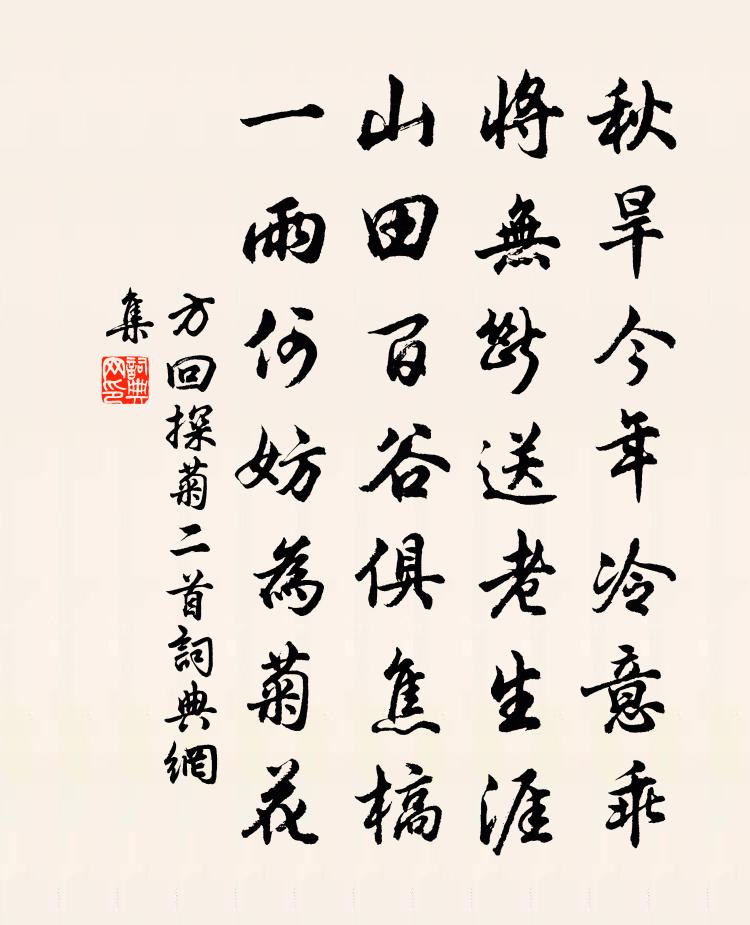 秋旱今年冷意乖
將無斷送老生涯
山田百谷俱焦槁
一雨何妨為菊花
方回探菊二首詞典網
集
詞典网印